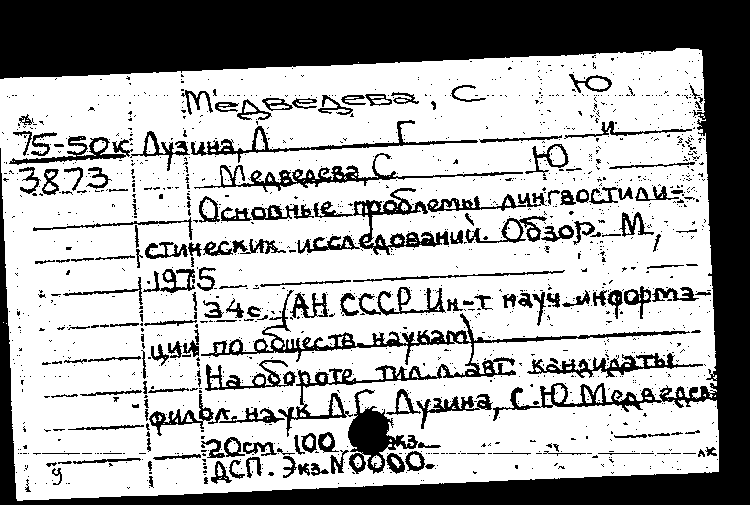 Медведева, С Ю
75-50к Лузина, Л Г и
3873 Медведева, С Ю
Основные проблемы лингвостили-
стических исследований. Обзор. М,
1975
34с. (АН СССР. Ин-т науч. информа-
ции по обществ. наукам).
На обороте тит. л. авт.: кандидаты
филол. наук Л.Г. Лузина, С.Ю. Медведева
20см. 100 экз.
ДСП. Экз. N0000.
у лк